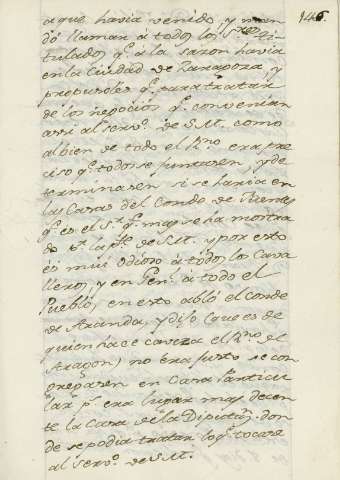 146.
a que havia venido, y man
dó llamar á todos los S.res Ti
tulados q.e á la sazon havia
en la Ciudad de Zaragoza, y
propusoles q.e para tratar
de los negocios q.e convenian
assi al serv.o de S.M. como
al bien de todo el R.no era pre
ciso q.e todos se juntasen, y de
terminasen si se haria en
las Casas del Conde de Fuentes
q.e es el S.r q.e mas se ha mostra
do la p.te de S.M. y por esto
es mui odioso á todos los Cava
lleros, y en Gen.l á todo el
Pueblo, en esto abló el Conde
de Aranda, y dijo (que es de
quien hace caveza el R.no de
Aragon) no era justo se con
gregasen en Casa Particu
lar p.s era lugar mas decen
te la Casa de la Diputa.n don
de se podia tratar lo q.e tocase
al serv.o de S.M.